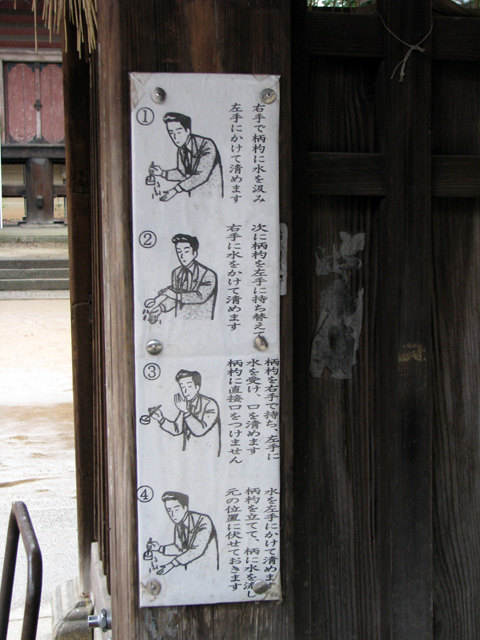 ①
右手で柄杓に水を汲み
左手にかけて清めます
②
次に柄杓を左手に持ち替えて
右手に水をかけて清めます
③
柄杓を右手で持ち、左手に
水を受け、口を清めます
柄杓に直接口をつけません
④
水を左手にかけて清めます
柄杓を立てて、柄に水を流し
元の位置に伏せておきます